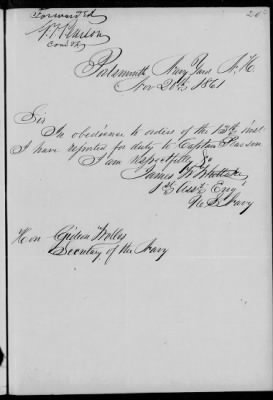 Forwarded
G. F. Pearson
Comdt
20
Portsmouth Navy Yard N. H.
Nov 20th 1861
Sir
In obedience to orders of the 13th inst
I have reported for duty to Captain Pearson
I am respectfully &c
James W Whittaker
1st Asst Engr
U. S. Navy
Hon Gideon Welles
Secretary of the Navy